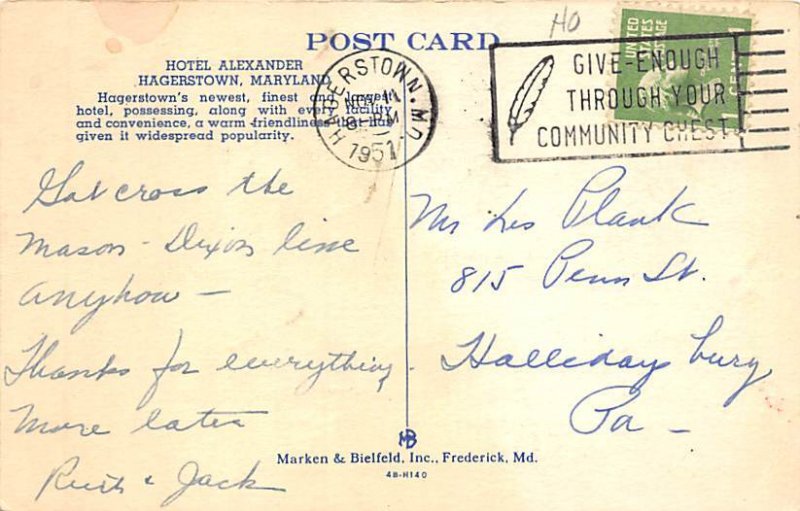 HO
POST CARD
HOTEL ALEXANDER
HAGERSTOWN, MARYLAND
Hagerstown's newest, finest and largest
hotel, possessing, along with every facility
and convenience, a warm friendliness that has
given it widespread popularity.
HAGERSTOWN. MD.
NOV 11
PM
1951
GIVE-ENOUGH
THROUGH YOUR
COMMUNITY CHEST
UNITED
STATES
POSTAGE
1 CENT
Got cross the
Mason-Dixon line
anyhow —
Thanks for everything.
More later
Ruth & Jack
Mr Les Plank
815 Penn St.
Hallidaysburg
Pa —
MB
Marken & Bielfeld, Inc., Frederick, Md.
4B-H140